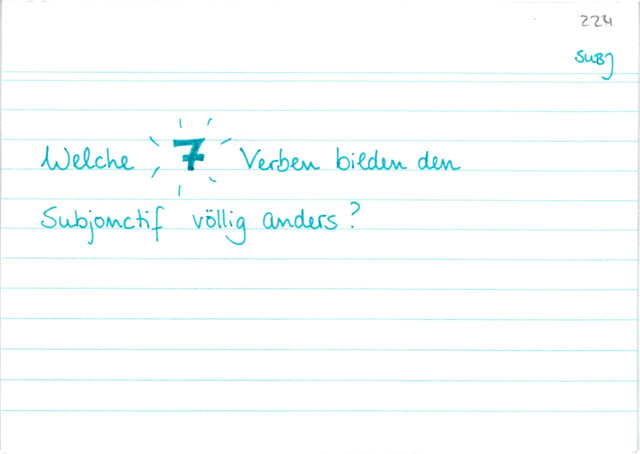 224
SUBJ
Welche 7 Verben bilden den
Subjonctif völlig anders?